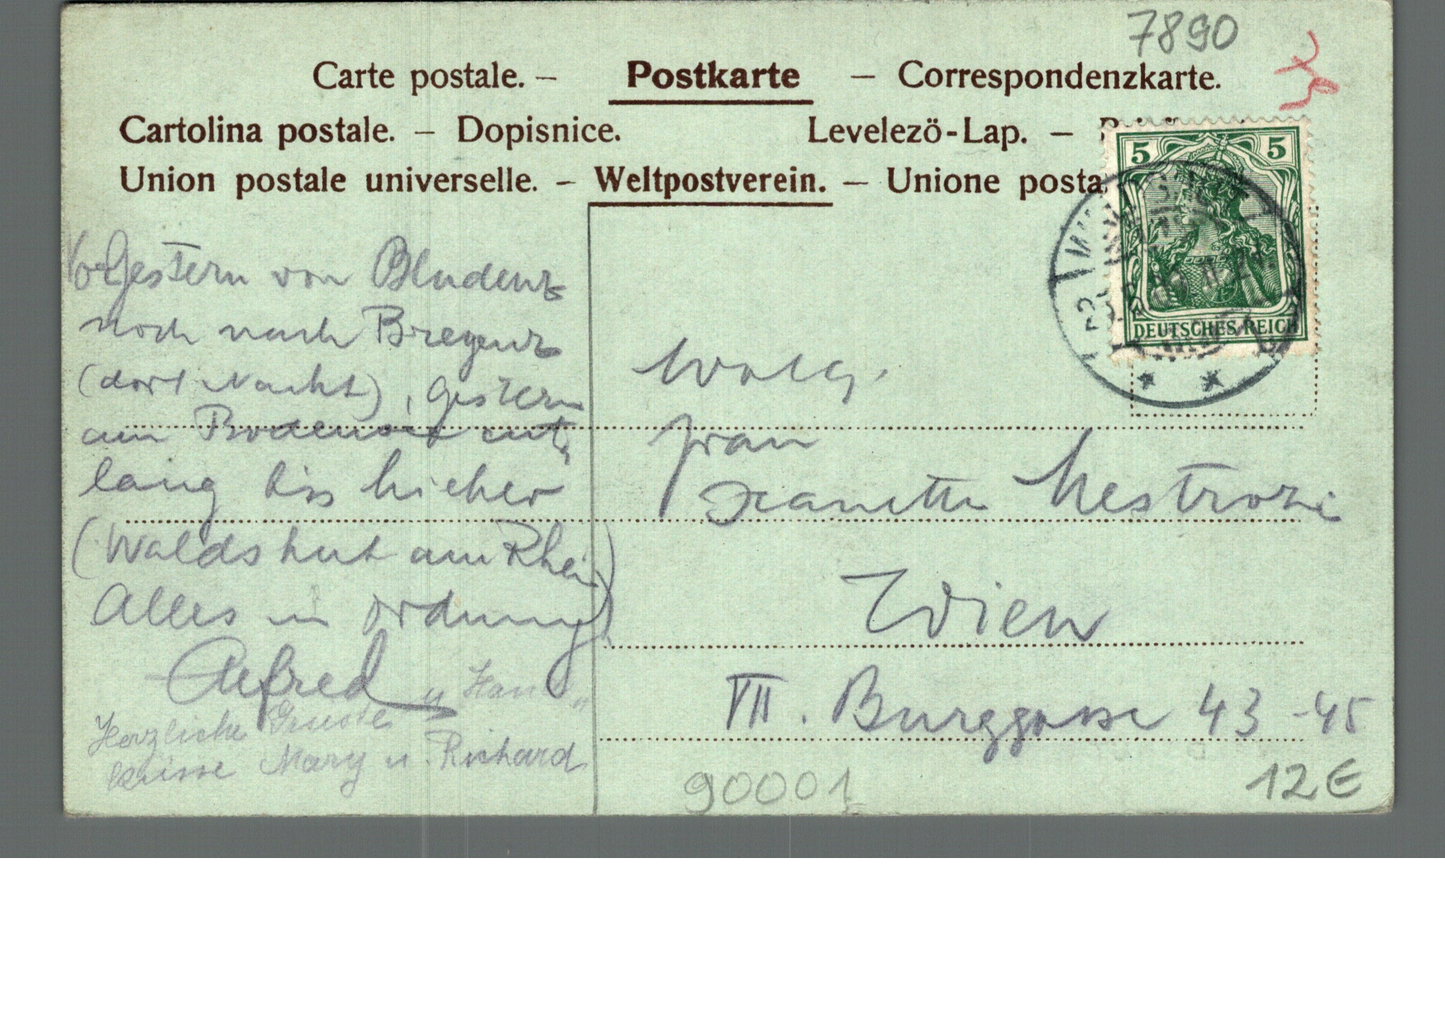 7890
Carte postale. – Postkarte – Correspondenzkarte.
Cartolina postale. – Dopisnice. Levelező-Lap. –
Union postale universelle. – Weltpostverein. – Unione posta
5 5
DEUTSCHES REICH
VorGestern von Bludenz
noch nach Bregenz
(dort Nacht), gestern
am Bodensee ent,
lang bis hieher
(Waldshut am Rhein)
Alles in Ordnung
Alfred u "Hans"
Herzliche Grüsse
Küsse Mary u. Richard
Wolg.
Frau
Jeanette Mestrozi
Wien
VII. Burggasse 43-45
90001
12€